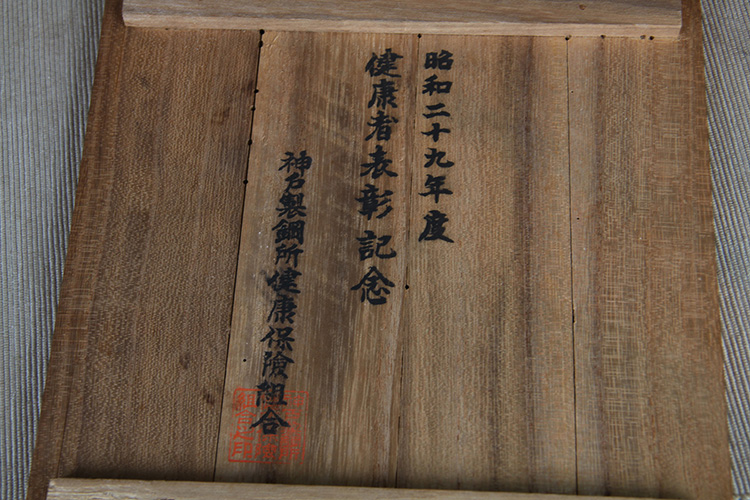 昭和二十九年度
健康者表彰記念
神戸製鋼所健康保險組合